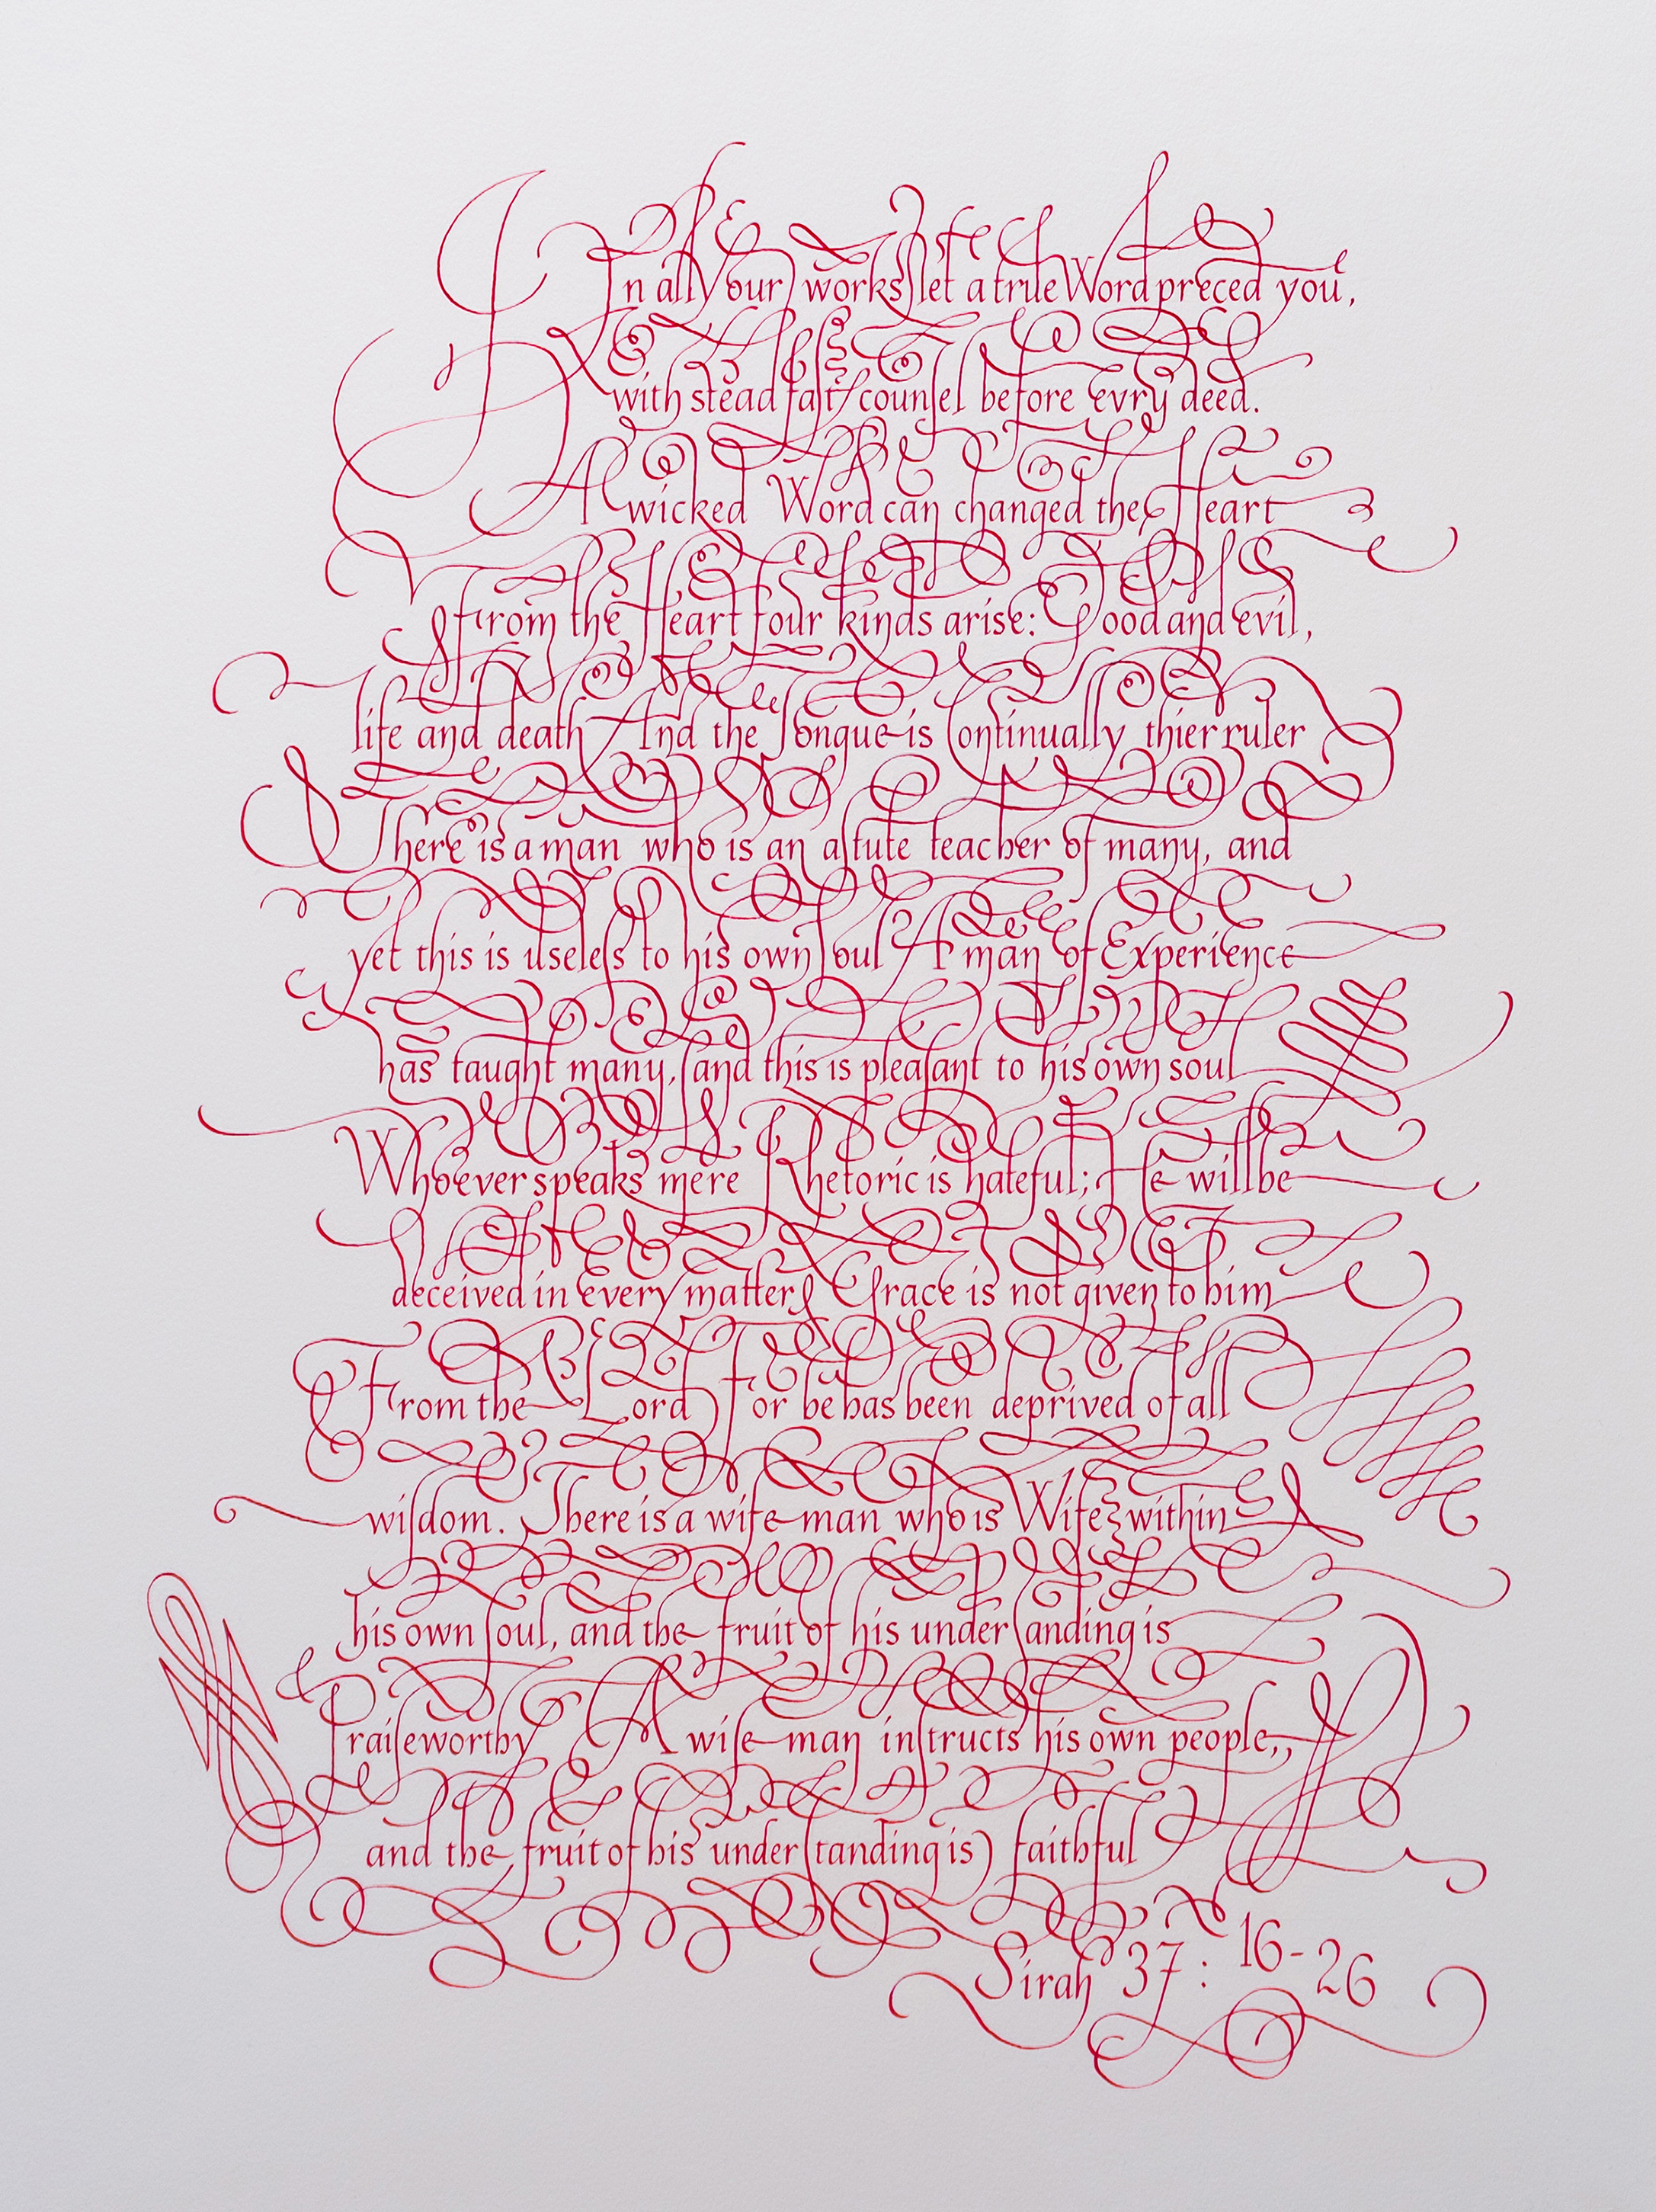 In all Your works let a true Word preced you,
with steadfast counsel before evry deed.
A wicked Word can changed the Heart
From the Heart four kinds arise: Good and evil,
life and death And the Tongue is Continually thier ruler
There is a man who is an astute teacher of many, and
yet this is useless to his own soul A man of Experience
has taught many, and this is pleasant to his own soul
Whoever speaks mere Rhetoric is hateful; He will be
deceived in Every matter Grace is not given to him
From the Lord For he has been deprived of all
wisdom. There is a wise man who is Wise within
his own soul, and the fruit of his undersanding is
Praiseworthy A wise man instructs his own people,
and the fruit of his understanding is faithful
Sirah 37: 16-26